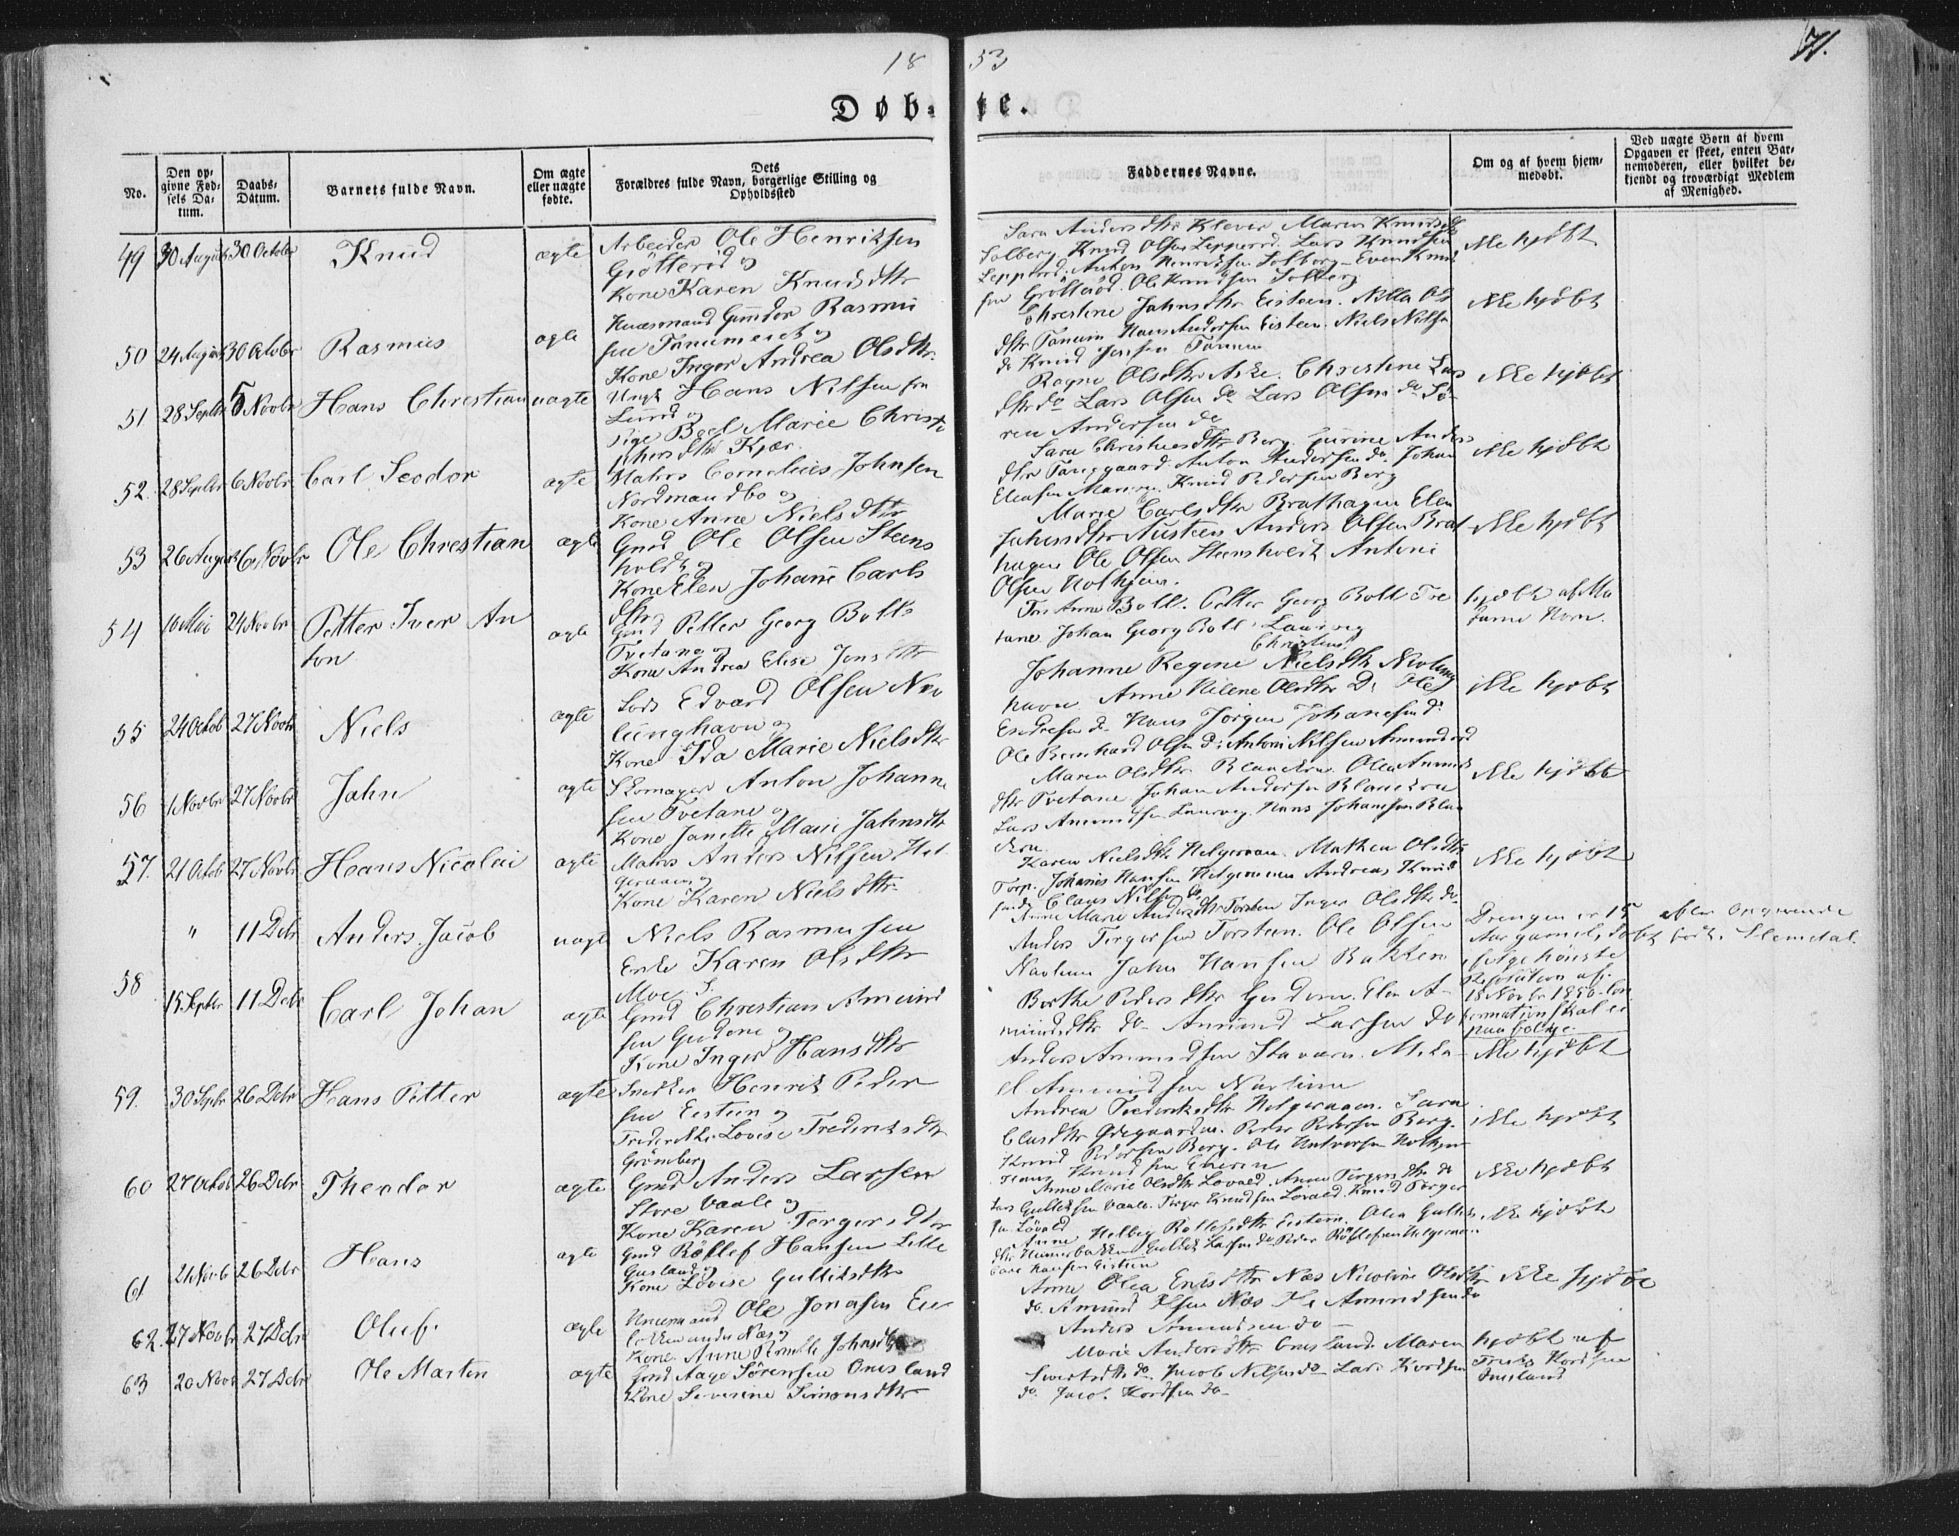 18 53
71.
Døbte.
No.
Den op-
givne Fød-
sels Da-
tum.
Daabs-
Datum.
Barnets fulde Navn.
Om ægte
eller uægte
fødte.
Dets
Forældres fulde Navn, borgerlige Stilling og
Opholdssted
Faddernes Navne.
Om og af hvem hjem-
medøbt.
Ved uægte Børn af hvem
Opgaven er skeet, enten Bar-
nemoderen, eller hvilket be-
kjendt og troværdigt Medlem
af Menighed.
49 30 August 30 October Knud ægte
Arbeider Ole Henriksen
Grötteröd og
Kone Karen Knudsdtr
Sara Andersdtr Klever Maren Knudsdtr
Solberg. Knud Olsen Lepperød. Lars Knudsen
Lepperød. Anton Henriksen Solberg - Even Knud
sen Grötteröd. Ole Knudsen Solberg
ikke hjdbt
50 24 August 30 October Rasmus ægte
Huusmand Gunder Rasmu
sen Tanumeiet og
Kone Inger Andrea Olsdtr.
Christine Jahnsdtr Eisteen. Nilla Ols
dtr Tanum Hans Andersen Eisteen. Niels Nilsen
do Knud Jensen Tanum
ikke hjdbt
51 28 Septbr 5 Novbr Hans Christian uægte
Ungk Hans Nilsen fra
Lund og
Pige Marie Christo
phersdtr Kjær.
Ragne Olsdtr Aske. Christine Lars
dtr do Lars Olsen do Lars Olsen do Sö-
ren Andersen do
ikke hjdbt
52. 28 Septbr 6 Novbr Carl Teodor ægte
Matros Cornelius Johnsen
Nordmandbo og
Kone Anne Nielsdtr
Sara Christensdtr Berg. Gurine Anders
dtr Tanggaard. Anton Andersen do. Johan
Knud Pedersen Berg
ikke hjdbt
53 26 August 6 Novbr Ole Christian ægte
Gmd Ole Olsen Steens
holdt og
Kone Elen Johane Carls
dtr
Marie Carlsdtr Brathagen Elen
Jahnsdtr Austeen Anders Olsen Brat
hagen Ole Olsen Steensholdt Antoni
Olsen Holhjem.
ikke hjdbt
54 10 Mai 24 Novbr Petter Iver An
ton
ægte
Gmd Petter Georg Boll
Tvetane og
Kone Andrea Elise Jensdtr
Anne Boll. Petter Georg Boll Tve
tane Johan Georg Boll Laurvig
hjdbt af Ma
dame Horn.
55 24 Octob 27 Novbr Niels ægte
Lods Edvard Olsen Nev
lunghavn og
Kone Ida Marie Nielsdtr
Christine
Johanne Regine Nielsdtr Nevlung
havn Anne Helene Olsdtr Do Ole
Endresen do Hans Jörgen Johannesen do
Ole Bernhard Olsen Do Antoni Nilsen Amundrød
ikke hjdbt
56 1 Novbr 27 Novbr Jahn ægte
Skomager Anton Johanne
sen Tvetane og
Kone Janette Marie Jahnsdtr
Maren Olsdtr Blandkrue Olea Amunds
dtr Tvetane Johan Andersen
Lars Amundsen Laurvig. Hans Johannesen
ikke hjdbt
57. 21 Octob 27 Novbr Hans Nicolai ægte
Matros Anders Nilsen Hel
geroaen og
Kone Karen Nielsdtr.
Karen Nielsdtr Helgeroaen. Mathea Olsdtr
Torp. Johannes Hansen Helgeroaen Andreas Knud
sen do Claus Nilsen do
ikke hjdbt
" 11 Debr Anders Jacob uægte
Niels Rasmussen
Enke Karen Olsdtr
Moe
Anne Marie Andersdtr Torsteen Inger Olsdtr do
Anders Tergersen Torsteen. Ole Olsen
Navluen Jahn Hansen Bakken
Drengen er 15
Aar gamel, döbt
ifölge höieste
Resolution af
18 Novbr 1850. Con
firmation skal
paafölge.
efter Opgivende
födt i Slemdal.
58 15 Septbr 11 Debr Carl Johan ægte
Gmd Christian Amund
sen Gusdone og
Kone Inger Hansdtr
Berthe Pedersdtr Elen A-
mundsdtr do Amund Larsen do
Anders Amundsen Stavern.
Amundsen
ikke hjdbt
59. 30 Septbr 26 Debr Hans Petter ægte
Snedker Henrik Peder
sen Eisteen og
Frederikke Lovise Frederiksdtr
Grömberg
Andrea Frederiksdtr Helgeroaen. Sara
Clausdtr Ødegaarden. Peder Pedersen Berg.
Knud Pedersen Berg. Ole Halvorsen Holhjem
Hans Knudsen
ikke hjdbt
60 27 Octob 26 Debr Theodor ægte
Gmd Anders Larsen
Store Vaale og
Kone Karen Tergersdtr
Anne Marie Olsdtr Lövald. Anne Tergersdtr do
Lars Gulliksen Vaale. Terger Knudsen Lövald. Knud Terger
sen Lövald
ikke hjdbt
61 21 Novb 26 Debr Hans ægte
Gmd Röllef Hansen Lille
Gusland og
Kone Lovise Gulliksdtr
Anne Helvig Röllefsdtr Eisteen. Olea Gulliks
dtr Gullik Larsen do Peder Röllefsen Helgeroaen
Hansen Eisteen
ikke hjdbt
62. 27 Novbr 27 Debr Oluf. ægte
Huusmand Ole Jonasen
under Næs og
Kone Anne Johnsdtr
Anne Olea Eriksdtr Næs Nicoline Olsdtr
do. Amund Olsen Næs Ole Amundsen do
Anders Amundsen do
ikke hjdbt
63 20 Novbr 27 Debr Ole Marten ægte
Gmd Aage Sörensen Omsland
Kone Severine Simonsdtr
Marie Andersdtr Omsland Maren
Sivertsdtr do. Jacob Nilsen do Lars Kordsen
do. Jacob Kordsen do-
hjdbt af
Kordsen
Omsland